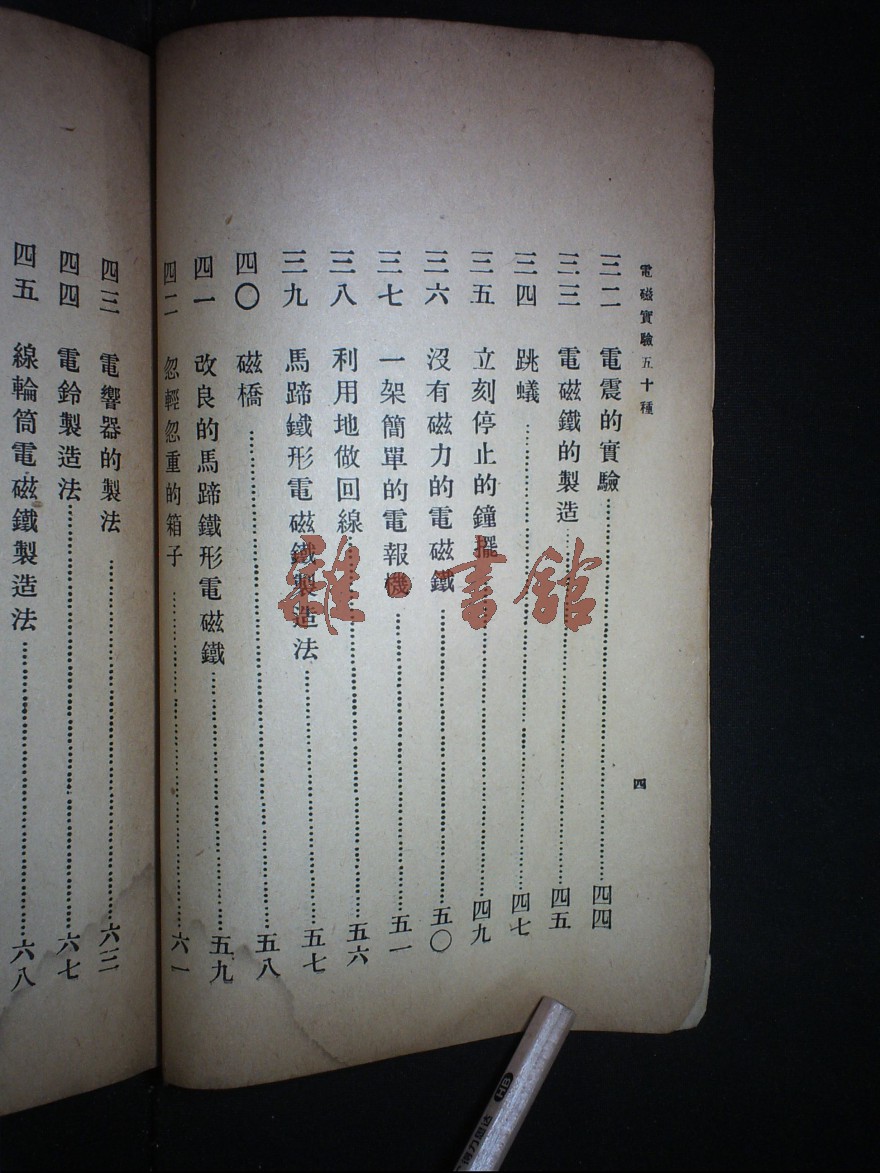 電磁實驗五十種
四
三二 電震的實驗……四四
三三 電磁鐵的製造……四五
三四 跳蟻……四七
三五 立刻停止的鐘擺……四九
三六 沒有磁力的電磁鐵……五〇
三七 一架簡單的電報機……五一
三八 利用地做回線……五六
三九 馬蹄鐵形電磁鐵製造法……五七
四〇 磁橋……五八
四一 改良的馬蹄鐵形電磁鐵……五九
四二 忽輕忽重的箱子……六一
四三 電響器的製法……六三
四四 電鈴製造法……六七
四五 線輪筒電磁鐵製造法……六八
雜·書館
HB